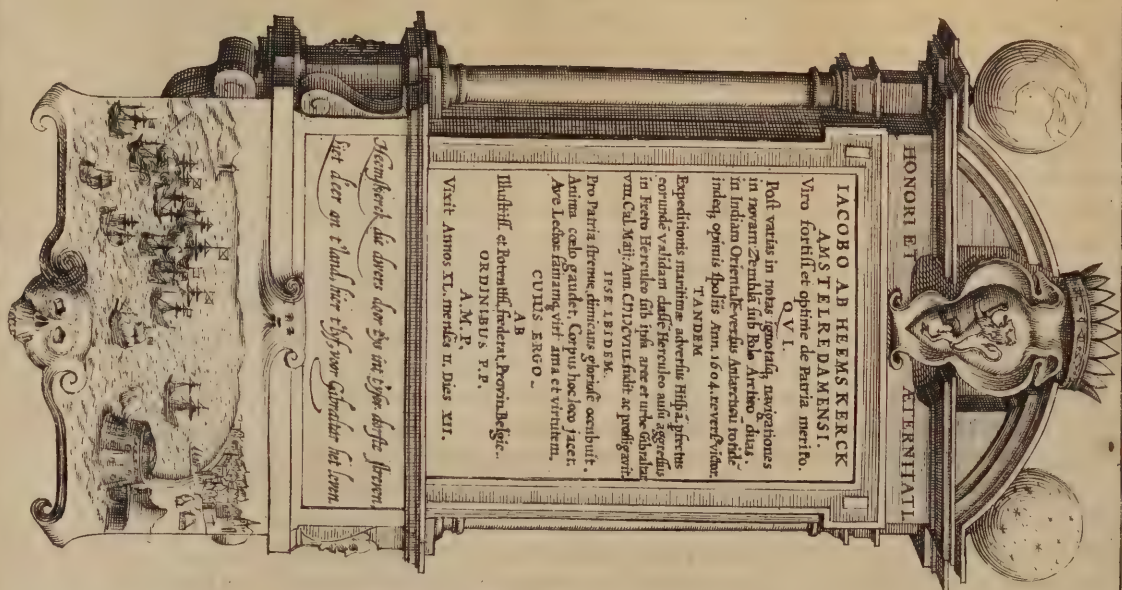 HONORI ET ÆTERNITATI.
IACOBO AB HEEMSKERCK
AMSTELREDAMENSI.
Viro fortiſſ. et optime de Patria merito.
QVI.
Poſt varias in notas ignotaſq, navigationes
in novam Zemblā ſub Polo Arctico duas.
in Indiam Orientalē verſus Antarcticū totidē
indeq, opimis ſpoliis Ann. 1604. reverſ, victor.
TANDEM
Expeditionis maritimæ adverſus Hiſpā. pfectus
eorundē validam claſſē Herculeo auſu aggreſſus
in Freto Herculeo ſub ipſa arce et urbe Gibraltar
VIII. Cal. Maij. Ann. CIƆIƆCVII. fudit ac profligavit.
IPSE IBIDEM.
Pro Patria ſtrenue, dimicans glorioſe occubuit.
Anima cœlo gaudet, Corpus hoc loco jacet.
Ave Lector, famamq, viri ama et virtutem.
CUIUS ERGO.
AB
Illuſtriſſ. et Potentiſſ. fœderat. Provin. Belgic.
ORDINIBUS P.P.
A.M.P.
Vixit Annos XL. menſes II. Dies XII.
Heemſkerck die dwers door Ys en t'yſer dorſte ſtreven,
liet d'eer aen t'land, hier t'lyf, voor Gibraltar het leven.